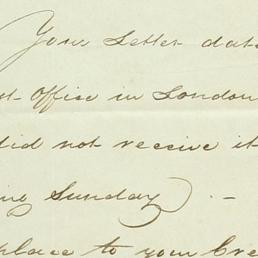 Your Letter dat
st Office in London
did not receive it
ing Sunday. -
place to your Cre